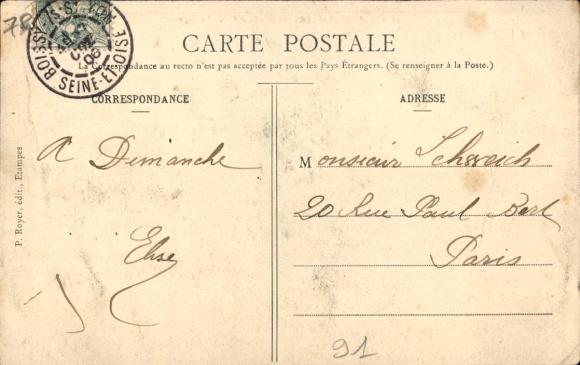 78
BOISSY-S-ST-YON
SEINE-ET-OISE
CARTE POSTALE
La Correspondance au recto n'est pas acceptée par tous les Pays Étrangers. (Se renseigner à la Poste.)
CORRESPONDANCE
A Dimanche
Elise
P. Royer, édit., Etampes
ADRESSE
Monsieur
20 Rue Paul Bert
Paris
91